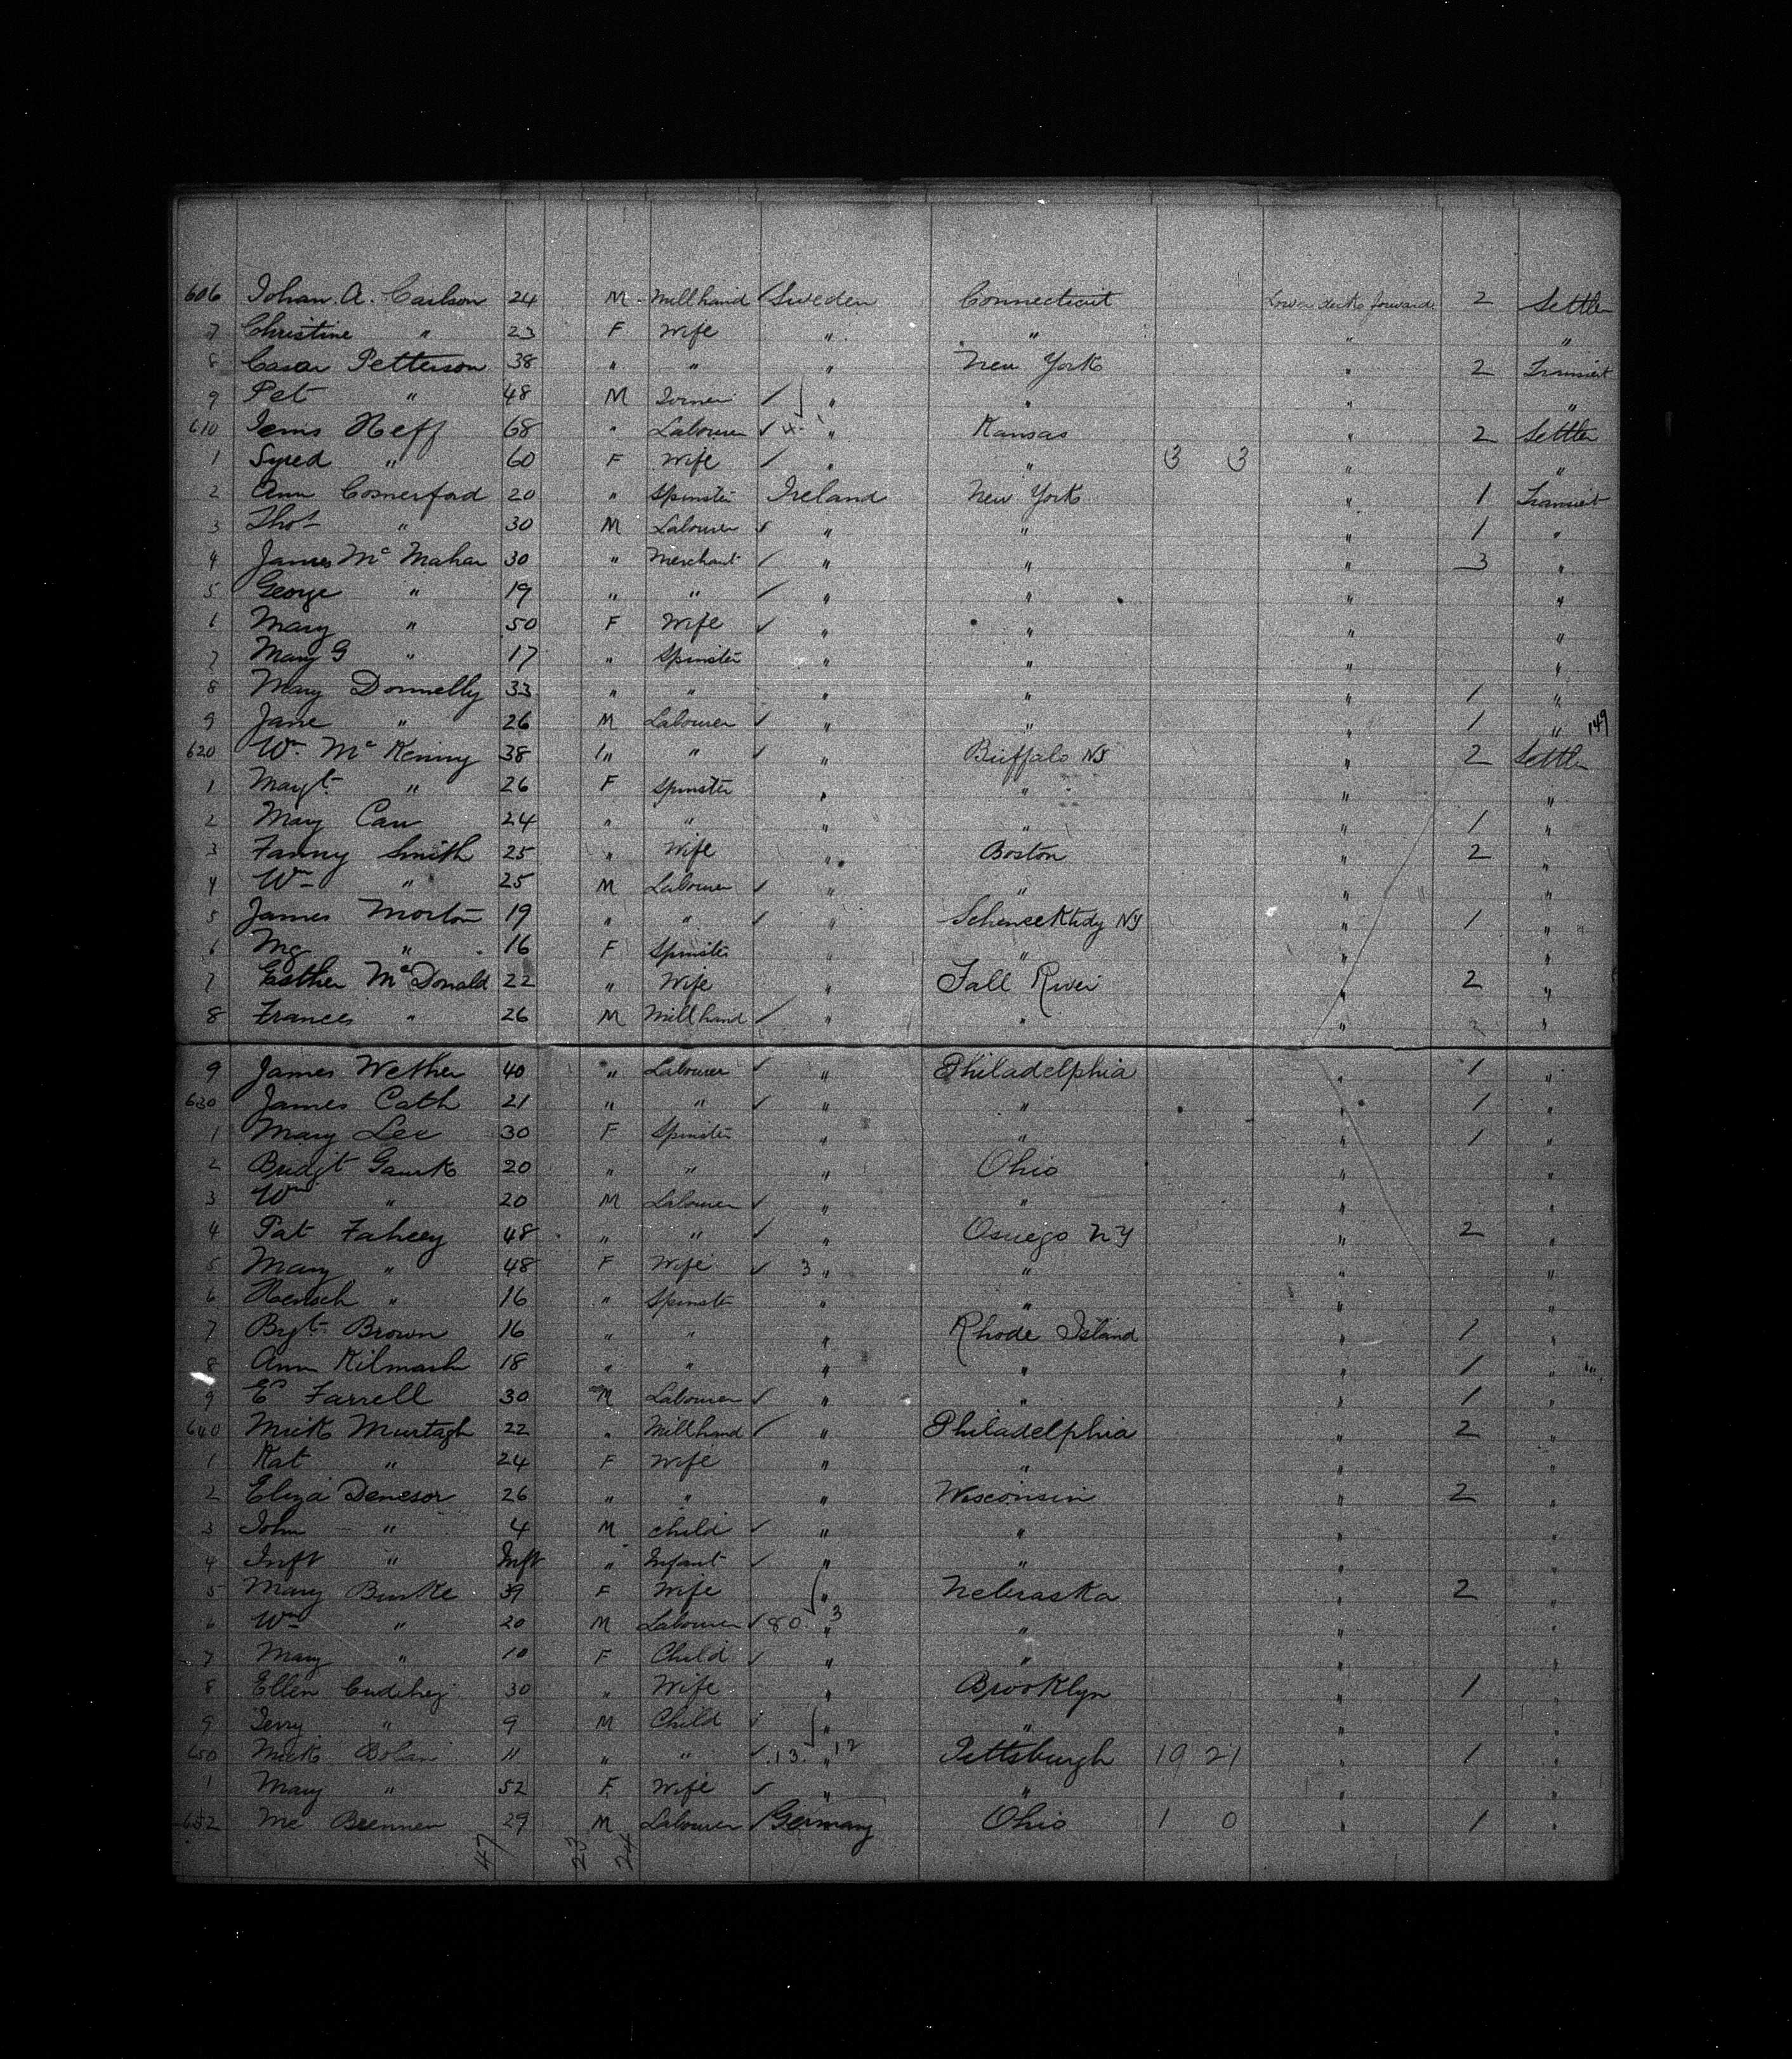 606 Johan A. Carlson 24 M Millhand Sweden Connecticut Lower deck forward 2 Settler
7 Christine " 23 F Wife " " " "
8 Casar Petterson 38 " " " New York " 2 Transient
9 Pet " 48 M ✓ " " " "
610 Jems Neff 68 " Labourer ✓ 4 " Kansas " 2 Settler
1 Syred " 60 F Wife ✓ " " 3 3 " "
2 Ann Comerford 20 " Spinster Ireland New York " 1 Transient
3 Thos " 30 M Labourer ✓ " " " 1 "
4 James Mc Mahan 30 " Merchant ✓ " " " 3 "
5 George " 19 " " ✓ " " " "
6 Mary " 50 F Wife ✓ " " " "
7 Mary G " 17 " Spinster " " " "
8 Mary Donnelly 33 " " " " " 1 "
9 Jane " 26 M Labourer ✓ " " " 1 " 149
620 Wm Mc Kenny 38 " " ✓ " Buffalo NY " 2 Settler
1 Margt " 26 F Spinster " " " "
2 Mary Carr 24 " " " " " 1 "
3 Fanny Smith 25 " Wife " Boston " 2 "
4 Wm " 25 M Labourer ✓ " " " "
5 James Morton 19 " " ✓ " Schenecktidy NY " 1 "
6 Mg " 16 F Spinster " " " "
7 Esther McDonald 22 " Wife " Fall River " 2 "
8 Frances " 26 M Millhand ✓ " " " "
9 James Wether 40 " Labourer ✓ " Philadelphia " 1 "
630 James Cath 21 " " ✓ " " " 1 "
1 Mary Lee 30 F Spinster " " " 1 "
2 Bridgt 20 " " " Ohio " "
3 Wm " 20 M Labourer ✓ " " " "
4 Pat Fahey 48 " " ✓ " Osuego NY " 2 "
5 Mary " 48 F Wife ✓ 3 " " " "
6 " 16 " Spinster " " " "
7 Bgt Brown 16 " " " Rhode Island " 1 "
8 Ann 18 " " " " " 1 "
9 E Farrell 30 M Labourer ✓ " " " 1 "
640 Mick Murtagh 22 " Millhand ✓ " Philadelphia " 2 "
1 Kat " 24 F Wife " " " "
2 Eliza Denesor 26 " " " Wisconsin " 2 "
3 John " 4 M Child ✓ " " " "
4 Inft " Inft " Infant ✓ " " " "
5 Mary Burke 39 F Wife " Nebraska " 2 "
6 Wm " 20 M Labourer ✓ 80 " 3 " " "
7 Mary " 10 F Child ✓ " " " "
8 Ellen Cudihey 30 " Wife " Brooklyn " 1 "
9 Jerry " 9 M Child ✓ " " " "
650 Mick Bolan 11 " " ✓ 13 " 12 Pittsburgh 19 21 " 1 "
1 Mary " 52 F Wife ✓ " " " "
652 Mc Brennen 29 M Labourer ✓ Germany Ohio 1 0 " 1 "
47 23 24